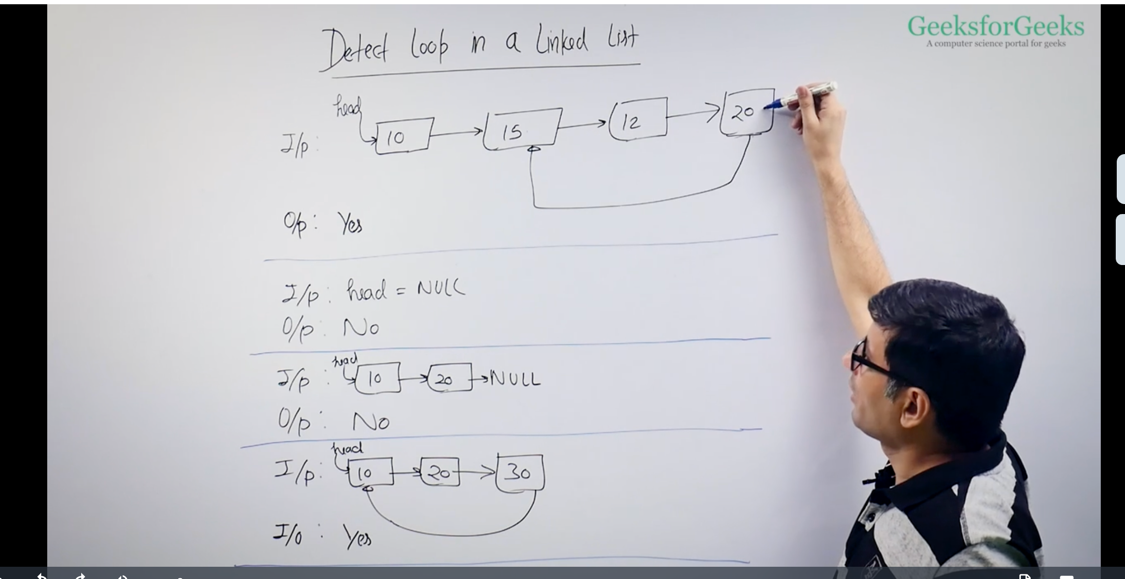 GeeksforGeeks
A computer science portal for geeks
Detect Loop in a Linked List
head
I/p: 10 15 12 20
O/p: Yes
I/p: head = NULL
O/p: No
head
I/p: 10 20 NULL
O/p: No
head
I/p: 10 20 30
I/o: Yes